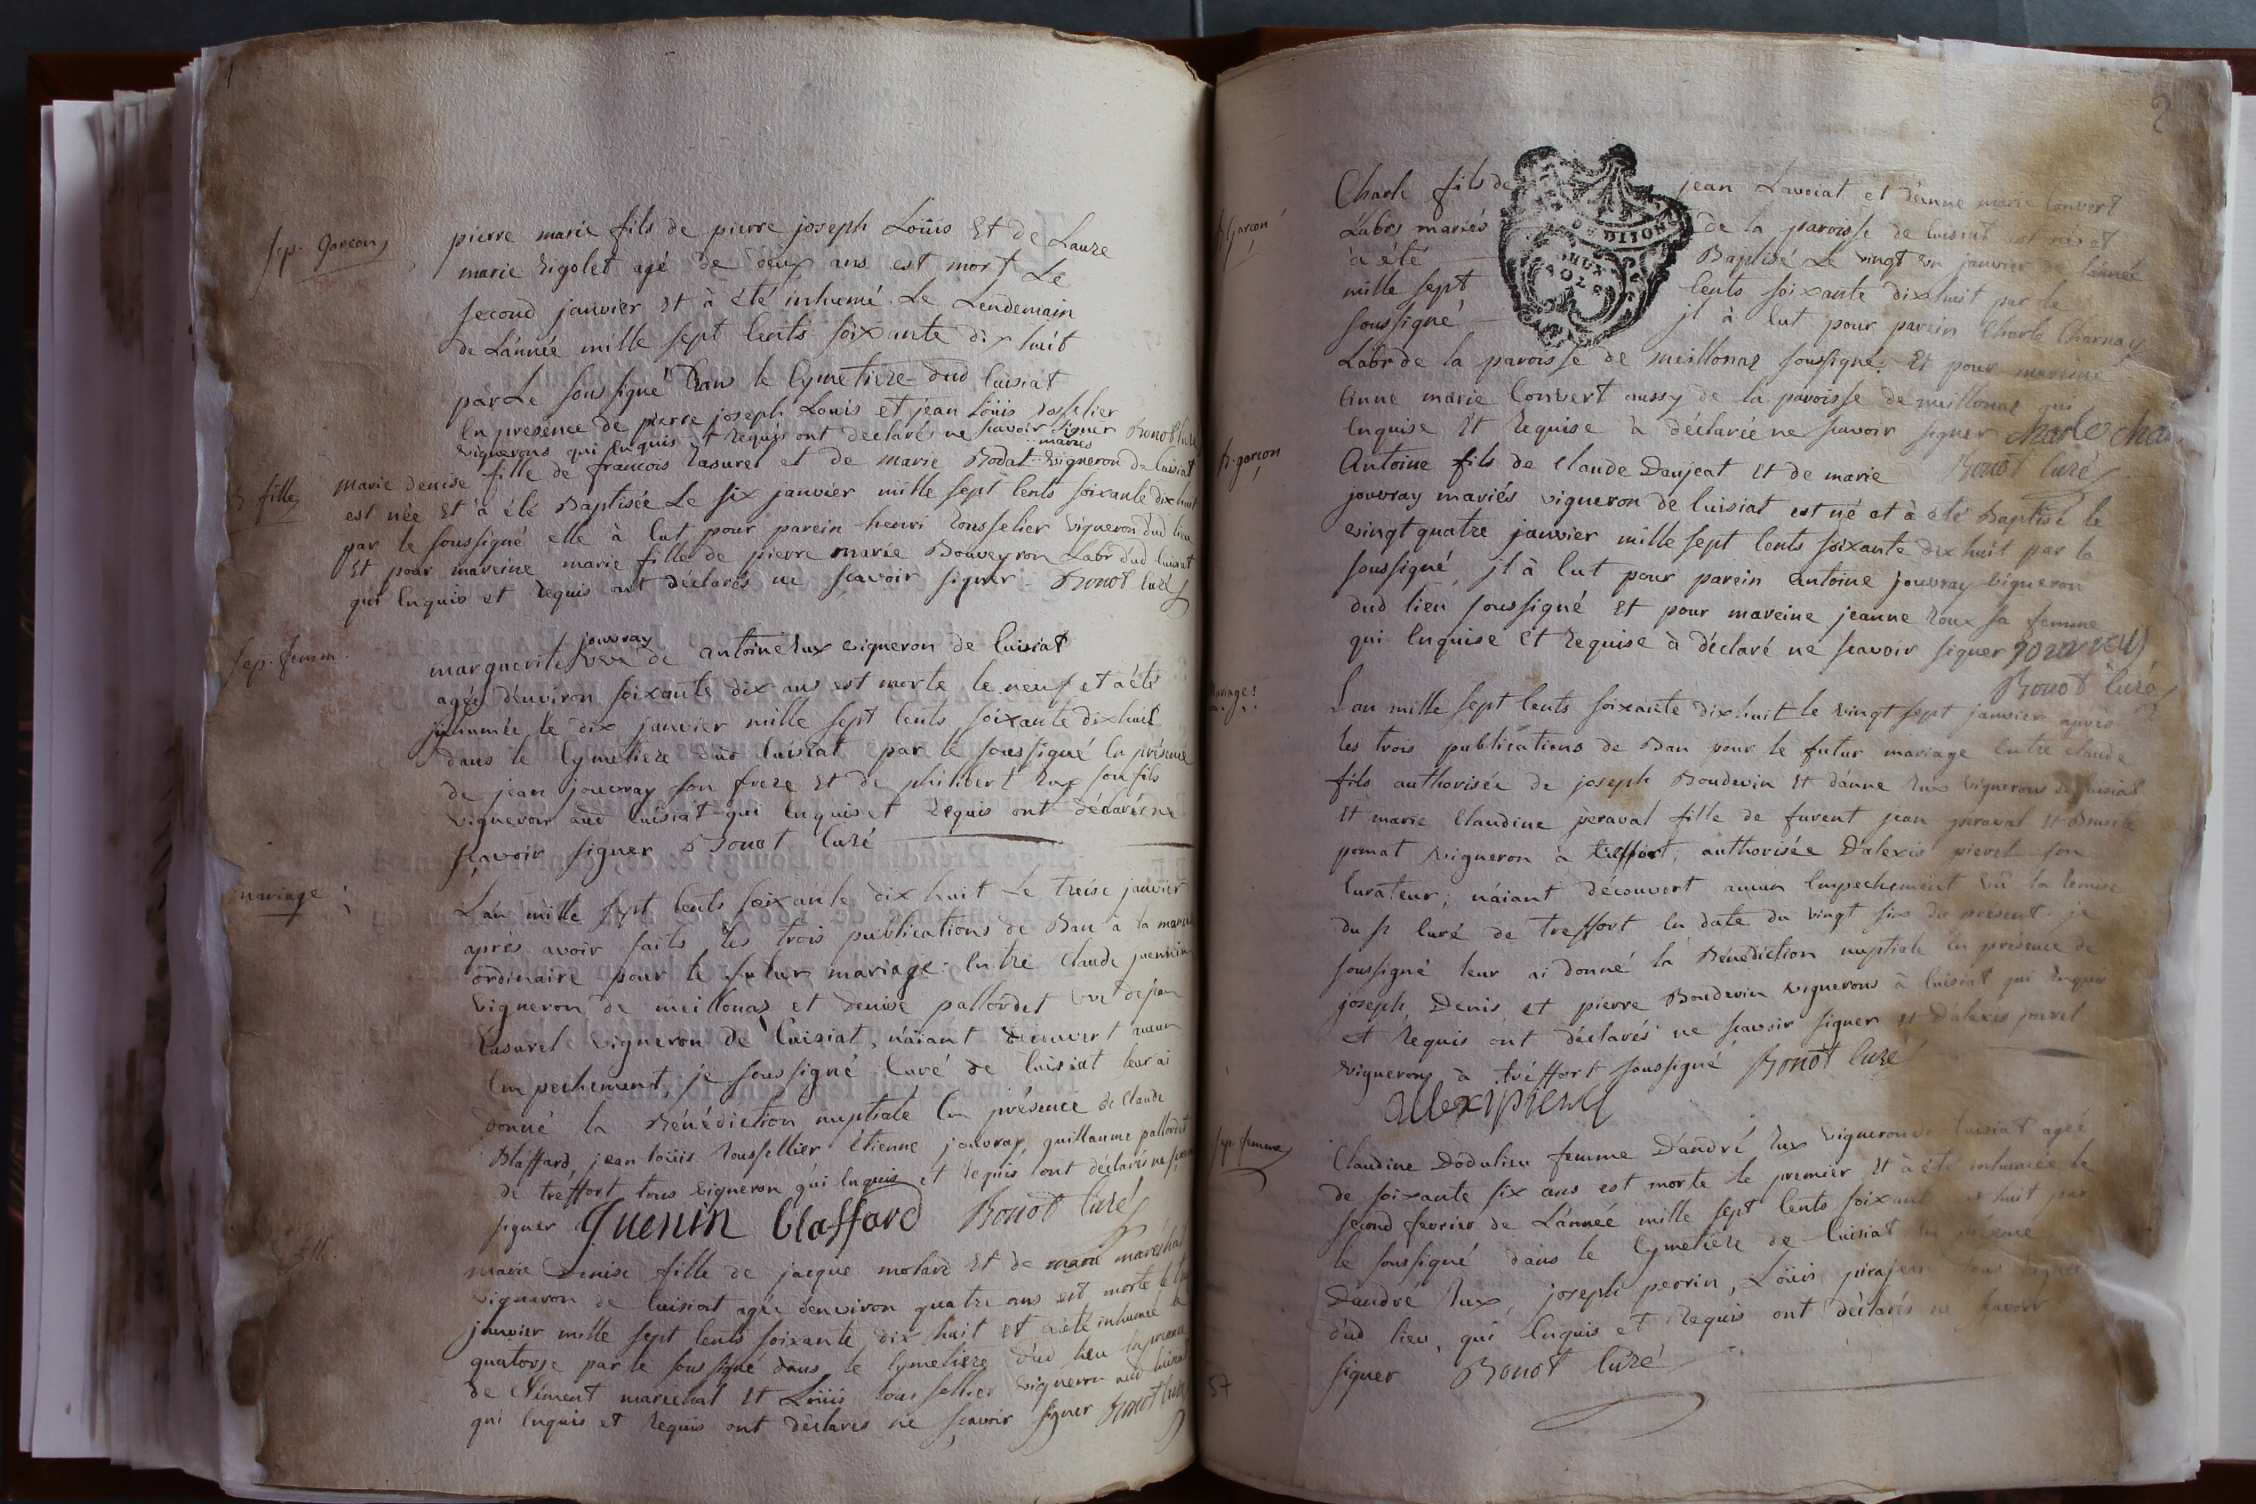 Sep. Garcon
pierre marie fils de pierre joseph Loüis Et de Laure
marie Rigolet agé de deux ans est mort Le
second janvier Et à été inhumé Le Lendemain
de L'année mille sept Cents soixante dix huit
par Le soussigné Dans le Cymetiere dud Cuisiat
En presence de pierre joseph Louis et jean Loüis Rosselier
vignerons qui Enquis et Requis ont déclarés ne scavoir signer Bonot Curé
B. fille
marie denise fille de francois Rasurel et de marie Bodat mariés vigneron de Cuisiat
est née Et à été Baptisée Le six janvier mille sept Cents soixante dix huit
par le soussigné elle à Eut pour parein henri Rousselier vigneron dud lieu
Et pour mareine marie fille de pierre marie Bouveyron Labr dud Cuisiat
qui Enquis et Requis ont déclarés ne scavoir signer Bonot Curé
Sep. femm.
marguerite jouvray veve de antoine Rux vigneron de Cuisiat
agée d'environ soixante dix ans est morte le neuf et à été
jnhumée le dix janvier mille sept Cents soixante dix huit
dans le Cymetiere dud Cuisiat par le soussigné En présence
de jean jouvray son frere Et de philibert Rux son fils
vigneron aud Cuisiat qui Enquis et Requis ont déclarés ne
scavoir signer Bonot Curé
mariage
L'an mille sept Cents soixante dix huit Le treise janvier
aprés avoir faits les trois publications de Ban a la maniere
ordinaire pour le futur mariage Entre Claude
vigneron de meillonas et denise pallordet vve de jean
Rasurel vigneron de Cuisiat, n'aiant decouvert aucun
Empechement, je soussigné Curé de Cuisiat leur ai
donné la Bénédiction nuptiale En présence de Claude
Blaffard, jean loüis Rousellier Étienne jouvray, guillaume pallordet
de tréffort tous vigneron qui Enquis et Requis ont déclarés ne scavoir
signer Quenin Claffard Bonot Curé
marie Denise fille de jacque molard Et de marie mareshal
vigneron de Cuisiat agée d'environ quatre ans est morte le
janvier mille sept Cents soixante dix huit et à été inhumée le
quatorse par le soussigné dans le Cymetiere dud lieu En presence
de Clément marechal Et Loüis Roussellier vigneron aud Cuisiat
qui Enquis et Requis ont déclarés ne scavoir signer Bonot Curé
2
B. Garcon
Charle fils de jean Lavocat et d'anne marie Convert
Labrs mariés de la paroisse de Cuisiat est né et
à été Baptisé Le vingt un janvier de L'année
mille sept Cents soixante dix huit par le
soussigné jl à Eut pour parein Charle Charnay
Labr de la paroisse de meillonas soussigné Et pour mareine
anne marie Convert aussy de la paroisse de meillonas qui
Enquise Et Requise à déclarée ne scavoir signer Charle Char
DE DIJON
B. garcon
Antoine fils de Claude Daujeat Et de marie Bonot Curé
jouvray mariés vigneron de Cuisiat est né et à été Baptisé le
vingt quatre janvier mille sept Cents soixante dix huit par le
soussigné jl à Eut pour parein antoine jouvray vigneron
dud lieu soussigné Et pour mareine jeanne Roux sa femme
qui Enquise Et Requise à déclaré ne scavoir signer
Bonot Curé
mariage
L'an mille sept Cents soixante dix huit le vingt sept janvier apres
les trois publications de Ban pour le futur mariage Entre Claude
fils authorisée de joseph Boudevin Et d'anne Rux vignerons de Cuisiat
Et marie Claudine peraval fille de furent jean peraval Et
pomat vigneron à tréffort, authorisée D'alexis pierel son
Curateur, n'aiant découvert aucun Empechement vû la Remise
du sr Curé de treffort En date du vingt six du présent je
soussigné leur ai donné la Bénédiction nuptiale En présence de
joseph, Denis, et pierre Boudevin vignerons à Cuisiat qui Enquis
et Requis ont déclarés ne scavoir signer et D'alexis pierel
vignerons à tréffort soussigné Bonot Curé
Sep. femme
Claudine Dodulieu femme D'andré Rux vigneron de Cuisiat agée
de soixante six ans est morte le premier Et à été inhumée le
second fevrier de L'année mille sept Cents soixante dix huit par
le soussigné dans le Cymetiere de Cuisiat En présence
D'andré Rux, joseph perrin, Loüis tous vigner
dud lieu, qui Enquis et Requis ont déclarés ne scavoir
signer Bonot Curé
57